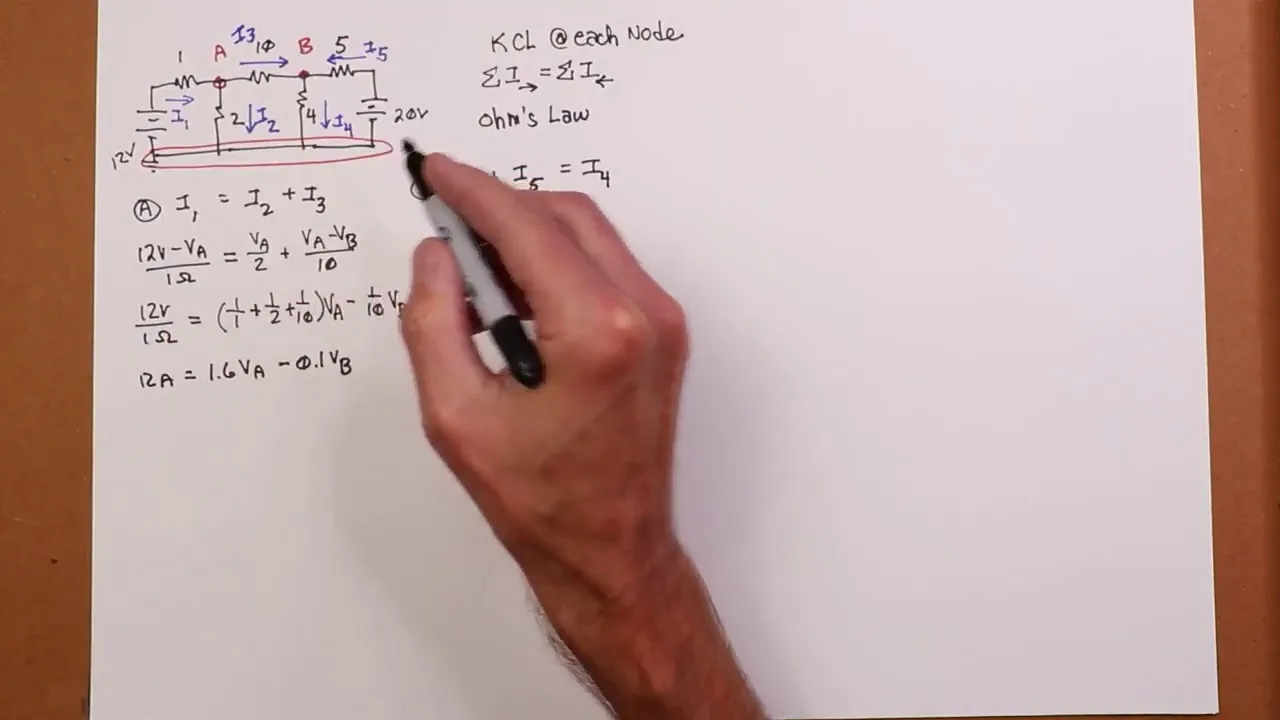 I3
1 A 10 B 5 I5
I1 2 I2 4 I4 20V
12V
KCL @ each Node
ΣI→ = ΣI←
Ohm's Law
Ⓐ I1 = I2 + I3
I5 = I4
12V-VA/1Ω = VA/2 + VA-VB/10
12V/1Ω = (1/1 + 1/2 + 1/10)VA - 1/10 VB
12A = 1.6VA - 0.1VB